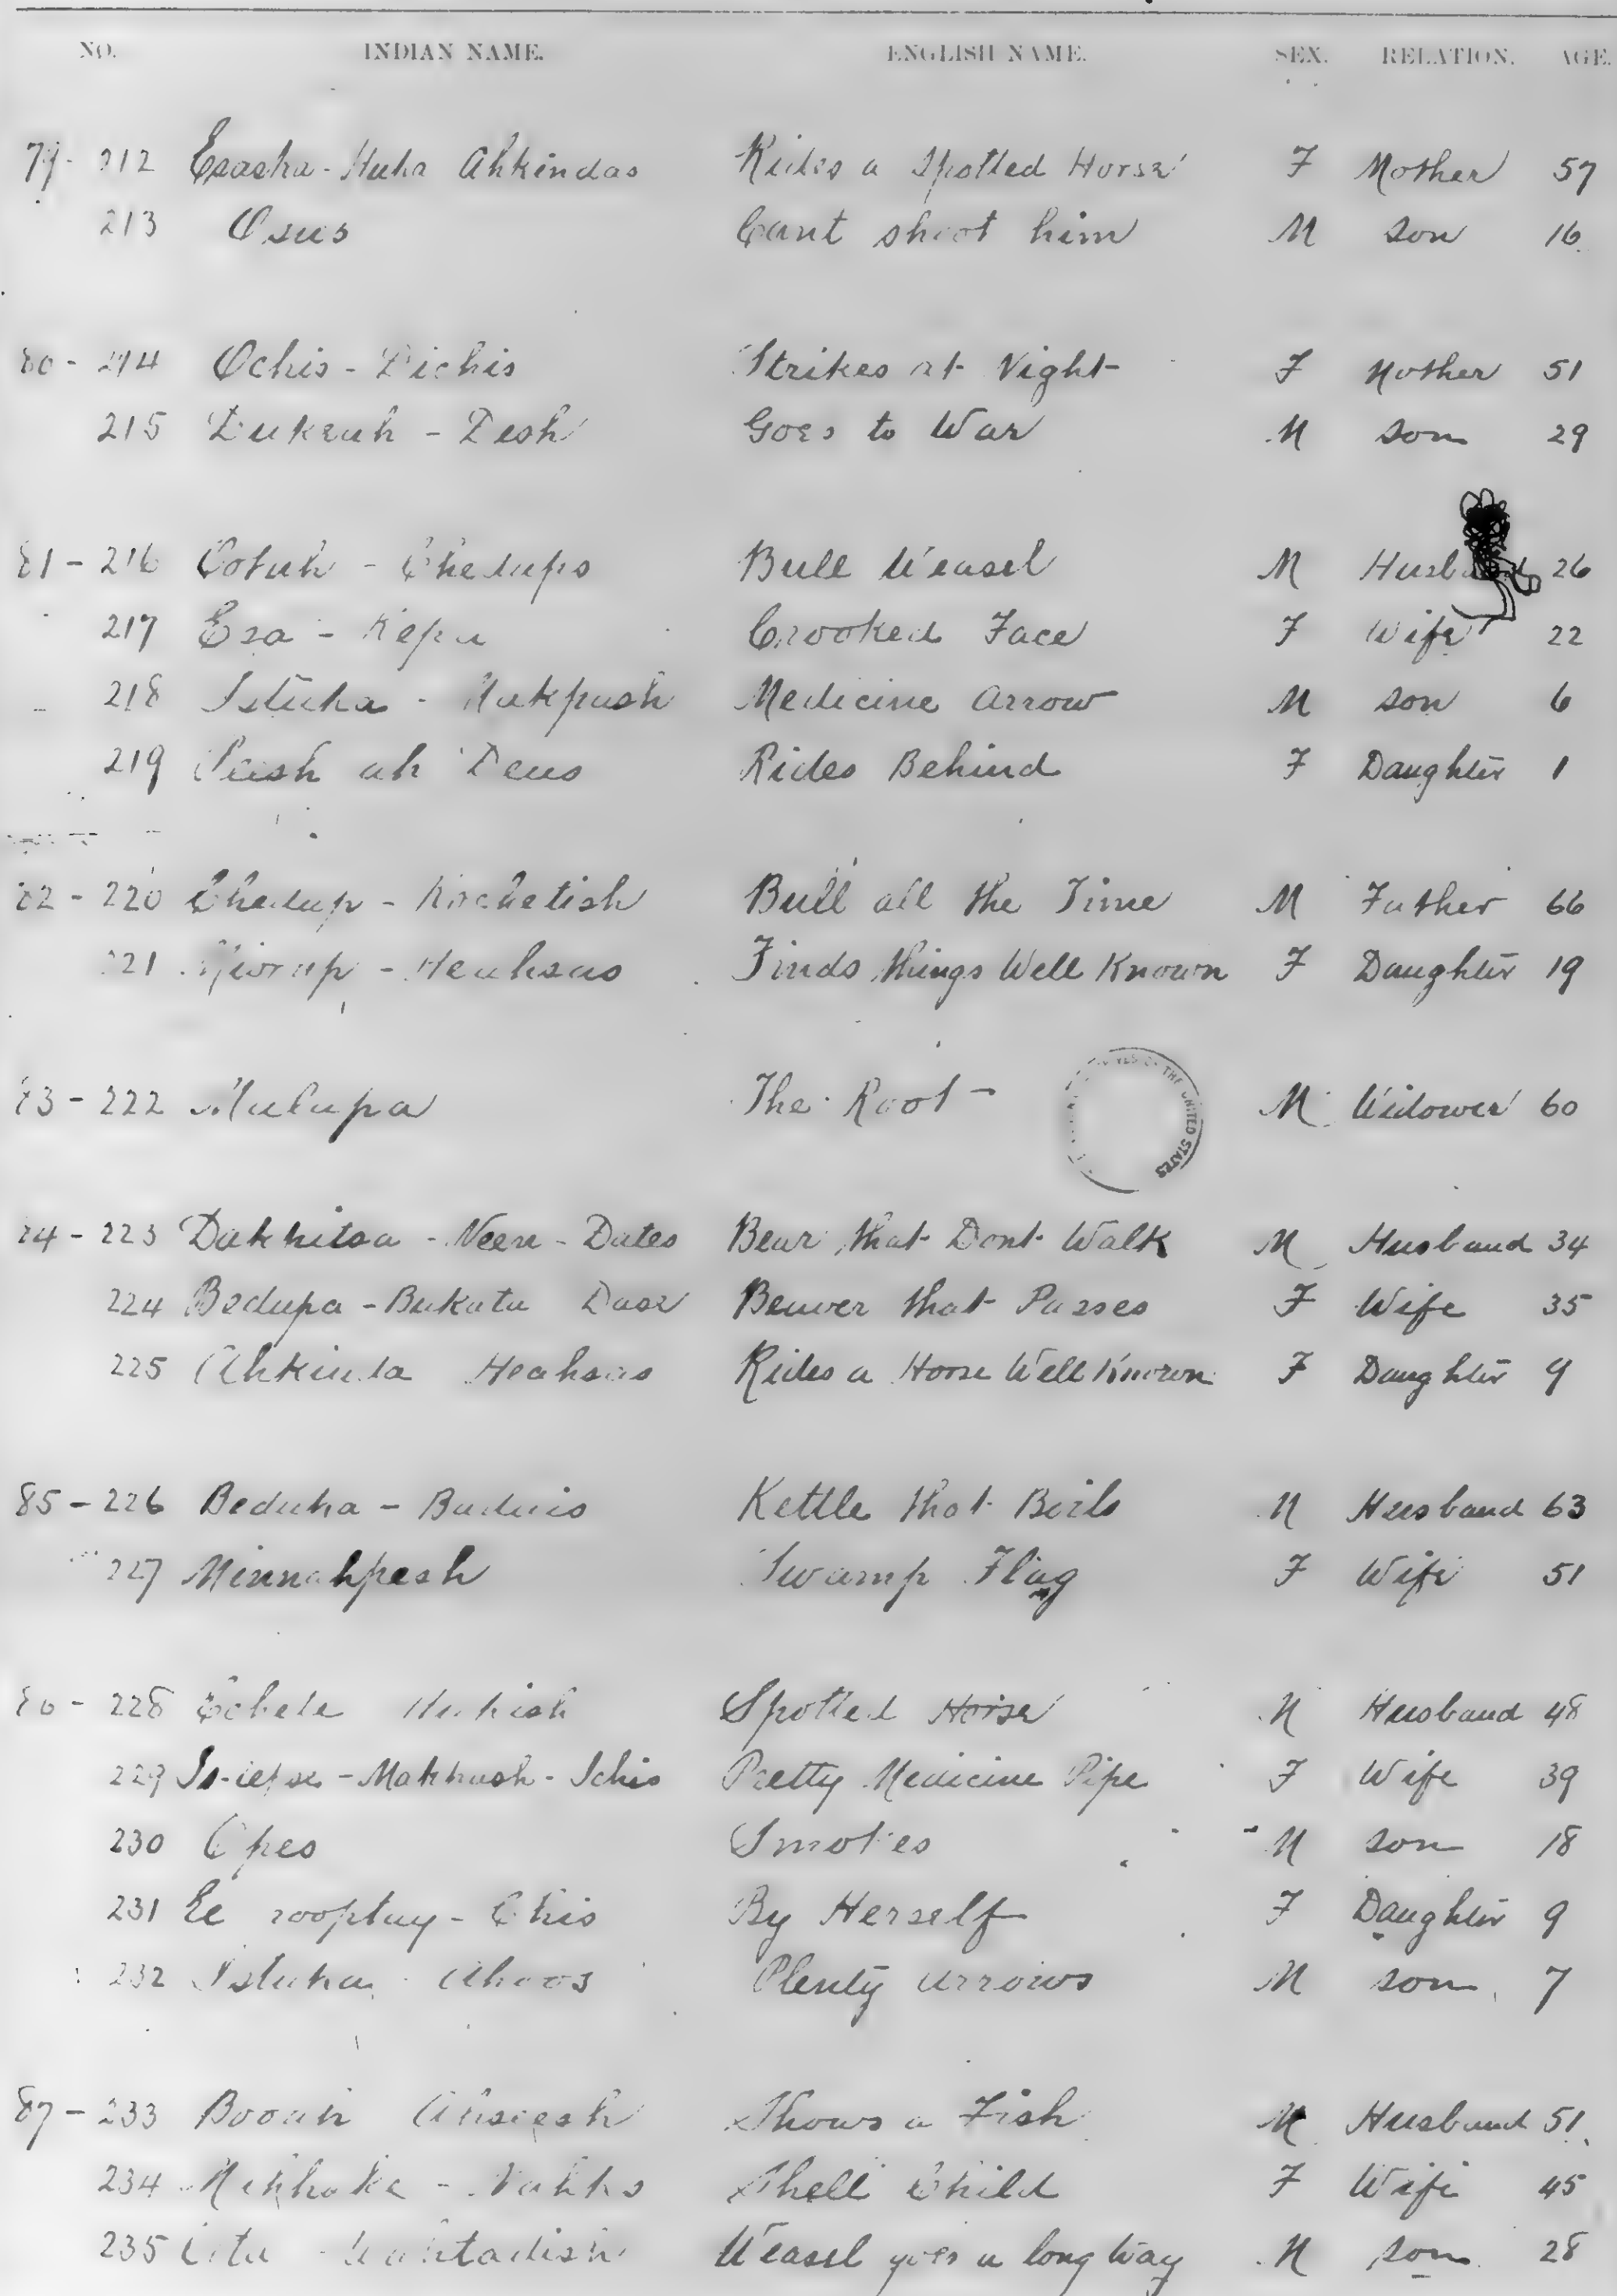 NO. INDIAN NAME. ENGLISH NAME. SEX. RELATION. AGE.
79 - 212 Esaska-Huka Ahkindas Rides a Spotted Horse F Mother 57
213 Osus Cant shoot him M son 16
80 - 214 Ochis-Dichis Strikes at Night F Mother 51
215 Dukeuh - Desh Goes to War M son 29
81 - 216 Ootuh - Chedups Bull Weasel M Husband 26
217 Esa - Kepa Crooked Face F Wife 22
218 Istuka - Makpash Medicine arrow M son 6
219 Peish ah Deus Rides Behind F Daughter 1
82 - 220 Chedup - Kochetish Bull all the Time M Father 66
221 - Heahsas Finds things Well Known F Daughter 19
83 - 222 Mulupa The Root M Widower 60
THE UNITED STATES
84 - 223 Dakkitsa - Neen - Dates Bear that Dont Walk M Husband 34
224 Bedupa - Bukata Dase Beaver that Passes F Wife 35
225 Ahkinda Heahsas Rides a Horse Well Known F Daughter 9
85 - 226 Beduha - Baduis Kettle that Boils M Husband 63
227 Minnahpesh Swamp Flag F Wife 51
86 - 228 Echete Spotted Horse M Husband 48
229 - Makkush - Ichis Pretty Medicine Pipe F Wife 39
230 Opes Smokes M son 18
231 Ee rooptay - Chis By Herself F Daughter 9
232 Istuka Ahoos Plenty arrows M son 7
87 - 233 Booah Ahseesh Shows a Fish M Husband 51
234 - Nahks Shell Child F Wife 45
235 Weasel goes a long Way M son 28